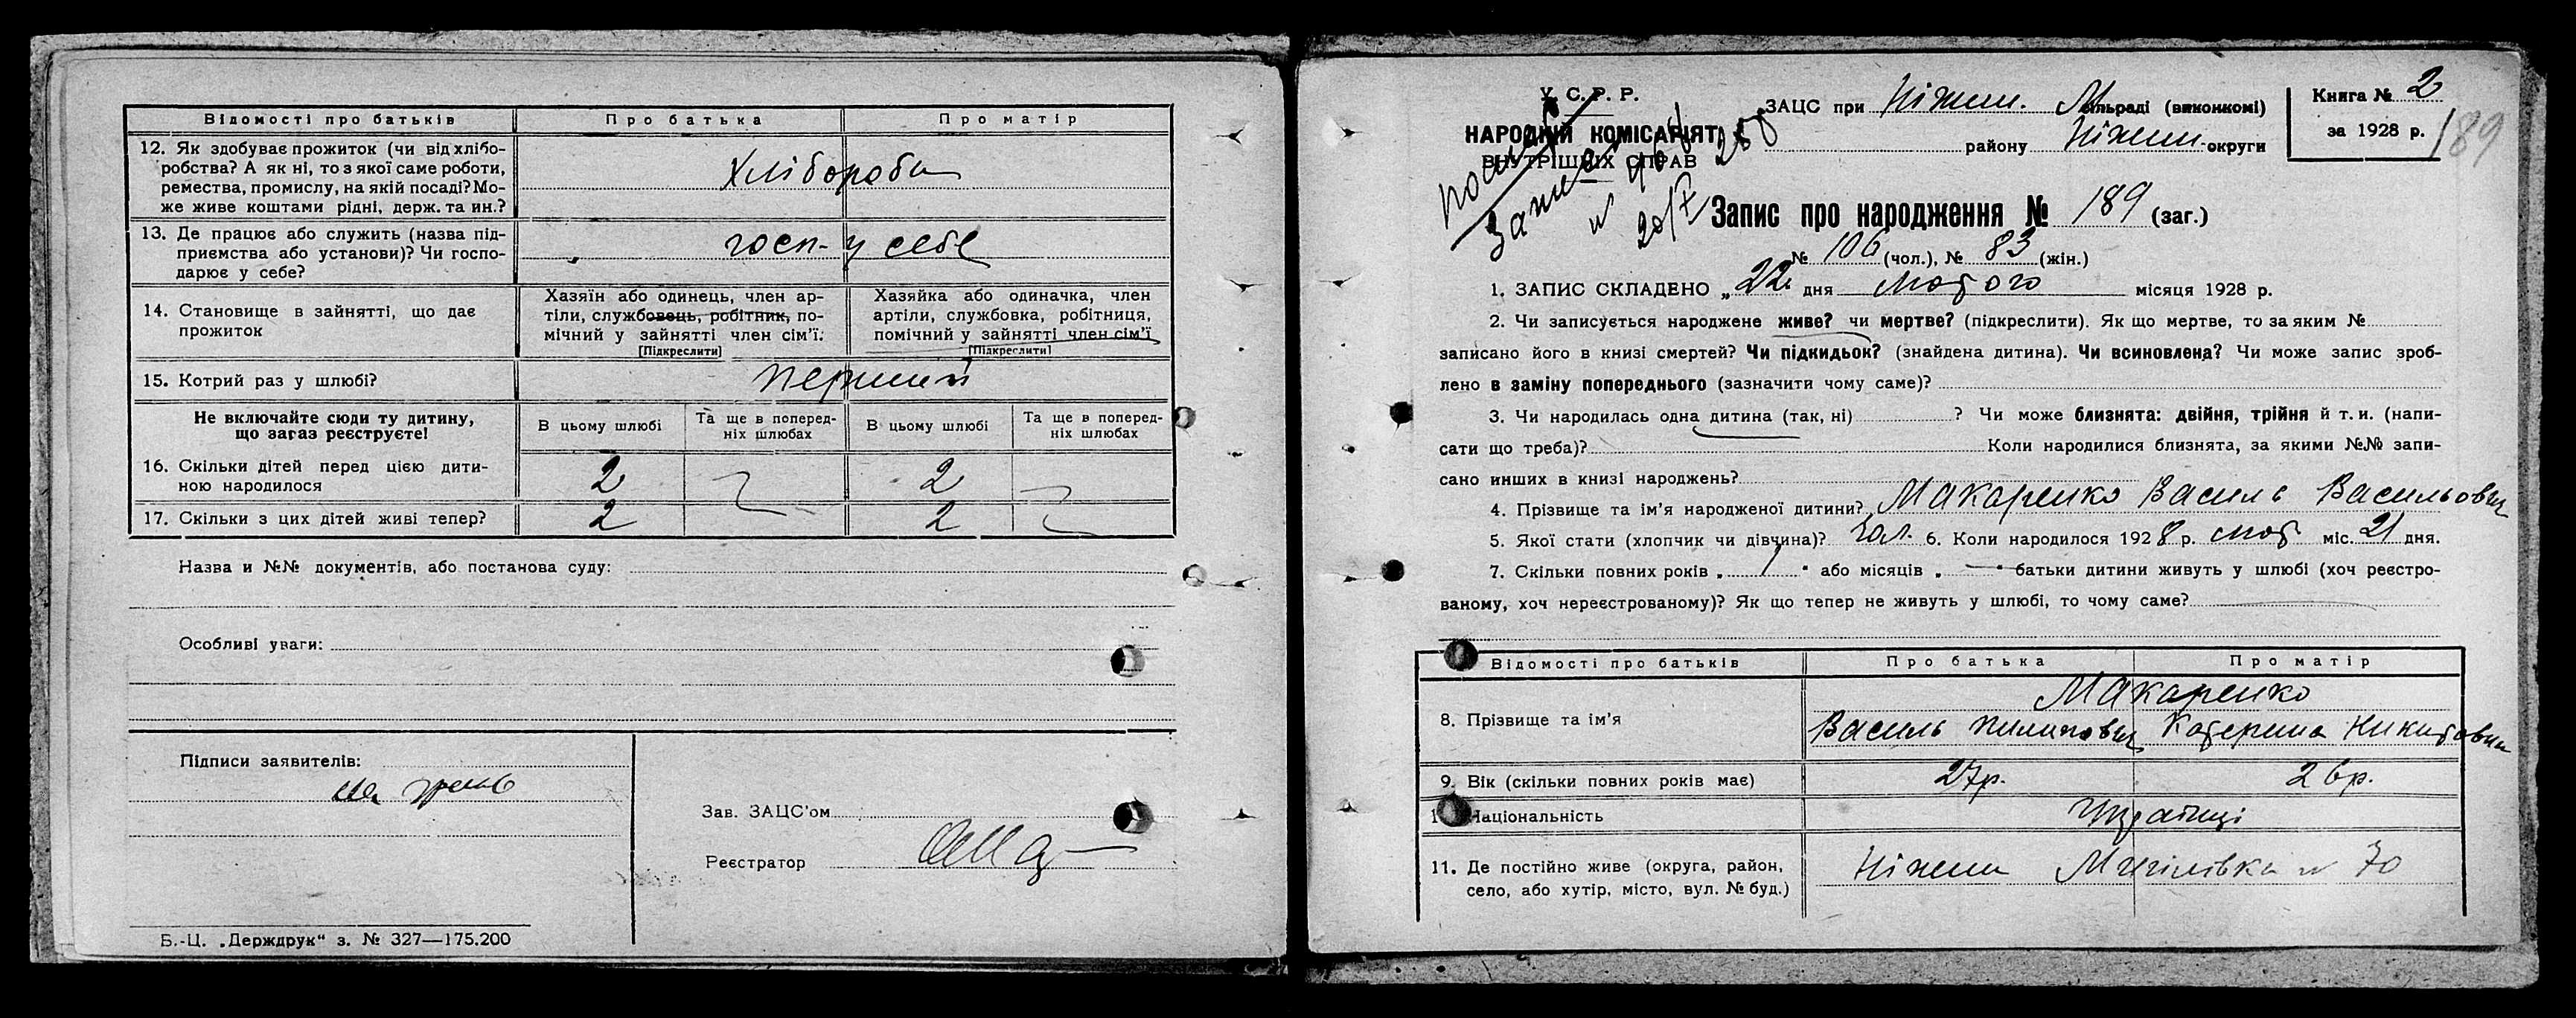 Відомості про батьків Про батька Про матір
12. Як здобуває прожиток (чи від хлібо-
робства? А як ні, то з якої саме роботи,
ремества, промислу, на якій посаді? Мо-
же живе коштами рідні, держ. та ин.?
Хлібороби
13. Де працює або служить (назва під-
приємства або установи)? Чи госпо-
дарює у себе?
госп- у себе
14. Становище в зайнятті, що дає
прожиток
Хазяїн або одинець, член ар-
тілі, службовець, робітник, по-
мічний у зайнятті член сім'ї.
[Підкреслити]
Хазяйка або одиначка, член
артілі, службовка, робітниця,
помічний у зайнятті член сім'ї
[Підкреслити]
15. Котрий раз у шлюбі? перший
Не включайте сюди ту дитину,
що загаз реєструєте!
В цьому шлюбі
Та ще в поперед-
ніх шлюбах
В цьому шлюбі
Та ще в поперед-
ніх шлюбах
16. Скільки дітей перед цією дити-
ною народилося
2 2
17. Скільки з цих дітей живі тепер? 2 2
Назва и №№ документів, або постанова суду:
Особливі уваги:
Підписи заявителів:
Зав. ЗАЦС'ом
Реєстратор
Б.-Ц. „Держдрук" з. № 327—175.200
У. С. Р. Р.
НАРОДНИЙ КОМІСАРІЯТ
ВНУТРІШНІХ СПРАВ
ЗАЦС при Ніжин. М сільраді (виконкомі)
району Ніжин. округи
Книга № 2
за 1928 р.
189
Запис про народження № 189 (заг.)
№ 106 (чол.), № 83 (жін.)
1. ЗАПИС СКЛАДЕНО „22" дня Лютого місяця 1928 р.
2. Чи записується народжене живе? чи мертве? (підкреслити). Як що мертве, то за яким №
записано його в книзі смертей? Чи підкидьок? (знайдена дитина). Чи всиновлена? Чи може запис зроб-
лено в заміну попереднього (зазначити чому саме)?
3. Чи народилась одна дитина (так, ні) ? Чи може близнята: двійня, трійня й т. и. (напи-
сати що треба)? Коли народилися близнята, за якими №№ запи-
сано инших в книзі народжень?
4. Прізвище та ім'я народженої дитини? Макаренко Василь Васильович
5. Якої стати (хлопчик чи дівчина)? чол. 6. Коли народилося 1928 р. лют. міс. 21 дня.
7. Скільки повних років „ 7 " або місяців „ — " батьки дитини живуть у шлюбі (хоч реєстро-
ваному, хоч нереєстрованому)? Як що тепер не живуть у шлюбі, то чому саме?
Відомості про батьків Про батька Про матір
Макаренко
8. Прізвище та ім'я
Василь Пилипович Катерина Никитовна
9. Вік (скільки повних років має) 27р. 26р.
Національність Українці
11. Де постійно живе (округа, район,
село, або хутір, місто, вул. № буд.)
Ніжин Мигілівка № 70